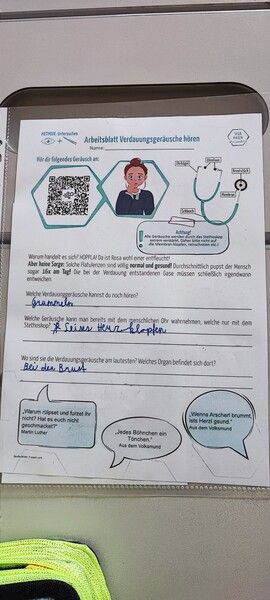 METHODE: Untersuchen
Arbeitsblatt Verdauungsgeräusche hören
Name:
Hör dir folgendes Geräusch an:
Ohrbügel
Oliven
Bruststück
Membran
Schlauch
Achtung!
Alle Geräusche werden durch das Stethoskop
extrem verstärkt. Daher bitte nicht auf
die Membran klopfen, reinschreien etc.!
Warum handelt es sich? HOPPLA! Da ist Rosa wohl einer entfleucht!
Aber keine Sorge: Solche Flatulenzen sind völlig normal und gesund! Durchschnittlich pupst der Mensch
sogar 16x am Tag! Die bei der Verdauung entstandenen Gase müssen schließlich irgendwann
entweichen.
Welche Verdauungsgeräusche kannst du noch hören?
Grummeln
Welche Geräusche kann man bereits mit dem menschlichen Ohr wahrnehmen, welche nur mit dem
Stethoskop?
Seinen Herz klopfen
Wo sind sie die Verdauungsgeräusche am lautesten? Welches Organ befindet sich dort?
Bei der Brust
„Warum rülpset und furzet ihr
nicht? Hat es euch nicht
geschmacket?"
Martin Luther
„Jedes Böhnchen ein
Tönchen."
Aus dem Volksmund
„Wenns Arscherl brummt,
ists Herzl gsund."
Aus dem Volksmund